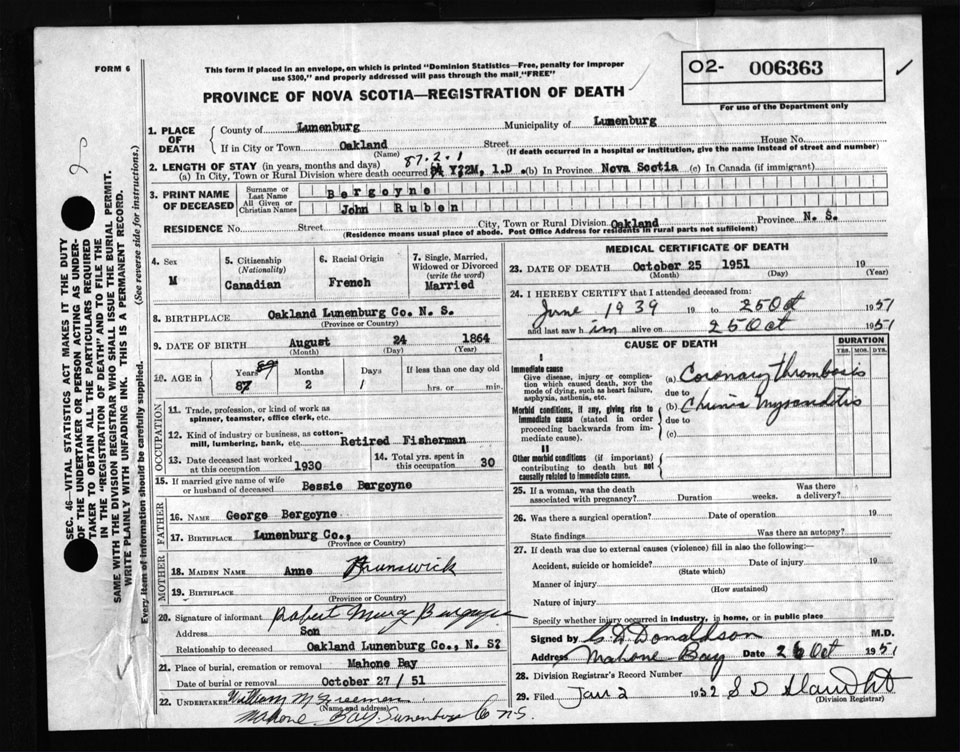 FORM 6
This form if placed in an envelope, on which is printed "Dominion Statistics—Free, penalty for improper
use $300," and properly addressed will pass through the mail "FREE"
PROVINCE OF NOVA SCOTIA—REGISTRATION OF DEATH
O2- 006363
For use of the Department only
SEC. 46—VITAL STATISTICS ACT MAKES IT THE DUTY
OF THE UNDERTAKER OR PERSON ACTING AS UNDER-
TAKER TO OBTAIN ALL THE PARTICULARS REQUIRED
IN THE "REGISTRATION OF DEATH" AND TO FILE THE
SAME WITH THE DIVISION REGISTRAR WHO SHALL ISSUE THE BURIAL PERMIT.
WRITE PLAINLY WITH UNFADING INK. THIS IS A PERMANENT RECORD.
Every item of information should be carefully supplied. (See reverse side for instructions.)
1. PLACE OF DEATH
County of Lunenburg Municipality of Lunenburg
If in City or Town Oakland Street House No.
(Name) (If death occurred in a hospital or institution, give the name instead of street and number)
87. 2. 1
2. LENGTH OF STAY (in years, months and days)
(a) In City, Town or Rural Division where death occurred Y;2M, 1.D. (b) In Province Nova Scotia (c) In Canada (if immigrant)
3. PRINT NAME OF DECEASED
Surname or Last Name Bergoyne
All Given or Christian Names John Ruben
RESIDENCE No. Street City, Town or Rural Division Oakland Province N. S.
(Residence means usual place of abode. Post Office Address for residents in rural parts not sufficient)
4. Sex M
5. Citizenship (Nationality) Canadian
6. Racial Origin French
7. Single, Married, Widowed or Divorced (write the word) Married
8. BIRTHPLACE Oakland Lunenburg Co. N. S.
(Province or Country)
9. DATE OF BIRTH August 24 1864
(Month) (Day) (Year)
10. AGE in Years Months Days If less than one day old
87 2 1 hrs. or min.
OCCUPATION
11. Trade, profession, or kind of work as
spinner, teamster, office clerk, etc.
12. Kind of industry or business, as cotton-
mill, lumbering, bank, etc. Retired Fisherman
13. Date deceased last worked at this occupation 1930
14. Total yrs. spent in this occupation 30
15. If married give name of wife or husband of deceased Bessie Bergoyne
FATHER
16. NAME George Bergoyne
17. BIRTHPLACE Lunenburg Co.,
(Province or Country)
MOTHER
18. MAIDEN NAME Anne Brunswick
19. BIRTHPLACE
(Province or Country)
20. Signature of informant Robert Burgoyne
Address Son
Relationship to deceased Oakland Lunenburg Co., N. S?
21. Place of burial, cremation or removal Mahone Bay
Date of burial or removal October 27 / 51
22. UNDERTAKER William McFreeman
(Name and address)
Mahone Bay Lunenburg Co N.S.
MEDICAL CERTIFICATE OF DEATH
23. DATE OF DEATH October 25 1951 19
(Month) (Day) (Year)
24. I HEREBY CERTIFY that I attended deceased from:
June 1939 19 to 25 Oct 1951
and last saw him alive on 25 Oct 1951
CAUSE OF DEATH
DURATION
YRS. MOS. DYS.
I
Immediate cause
Give disease, injury or complica-
tion which caused death, NOT the
mode of dying, such as heart failure,
asphyxia, asthenia, etc.
(a) Coronary thrombosis
due to
Morbid conditions, if any, giving rise to
immediate cause (stated in order
proceeding backwards from im-
mediate cause).
(b) Chronic Myocarditis
due to
(c)
II
Other morbid conditions (if important)
contributing to death but not
causally related to immediate cause.
25. If a woman, was the death
associated with pregnancy? Duration weeks. Was there a delivery?
26. Was there a surgical operation? Date of operation 19
State findings Was there an autopsy?
27. If death was due to external causes (violence) fill in also the following:—
Accident, suicide or homicide? Date of injury 19
(State which)
Manner of injury
(How sustained)
Nature of injury
Specify whether injury occurred in industry, in home, or in public place
Signed by Donaldson M.D.
Address Mahone Bay Date 26 Oct 1951
28. Division Registrar's Record Number
29. Filed Jan 2 1952
(Division Registrar)